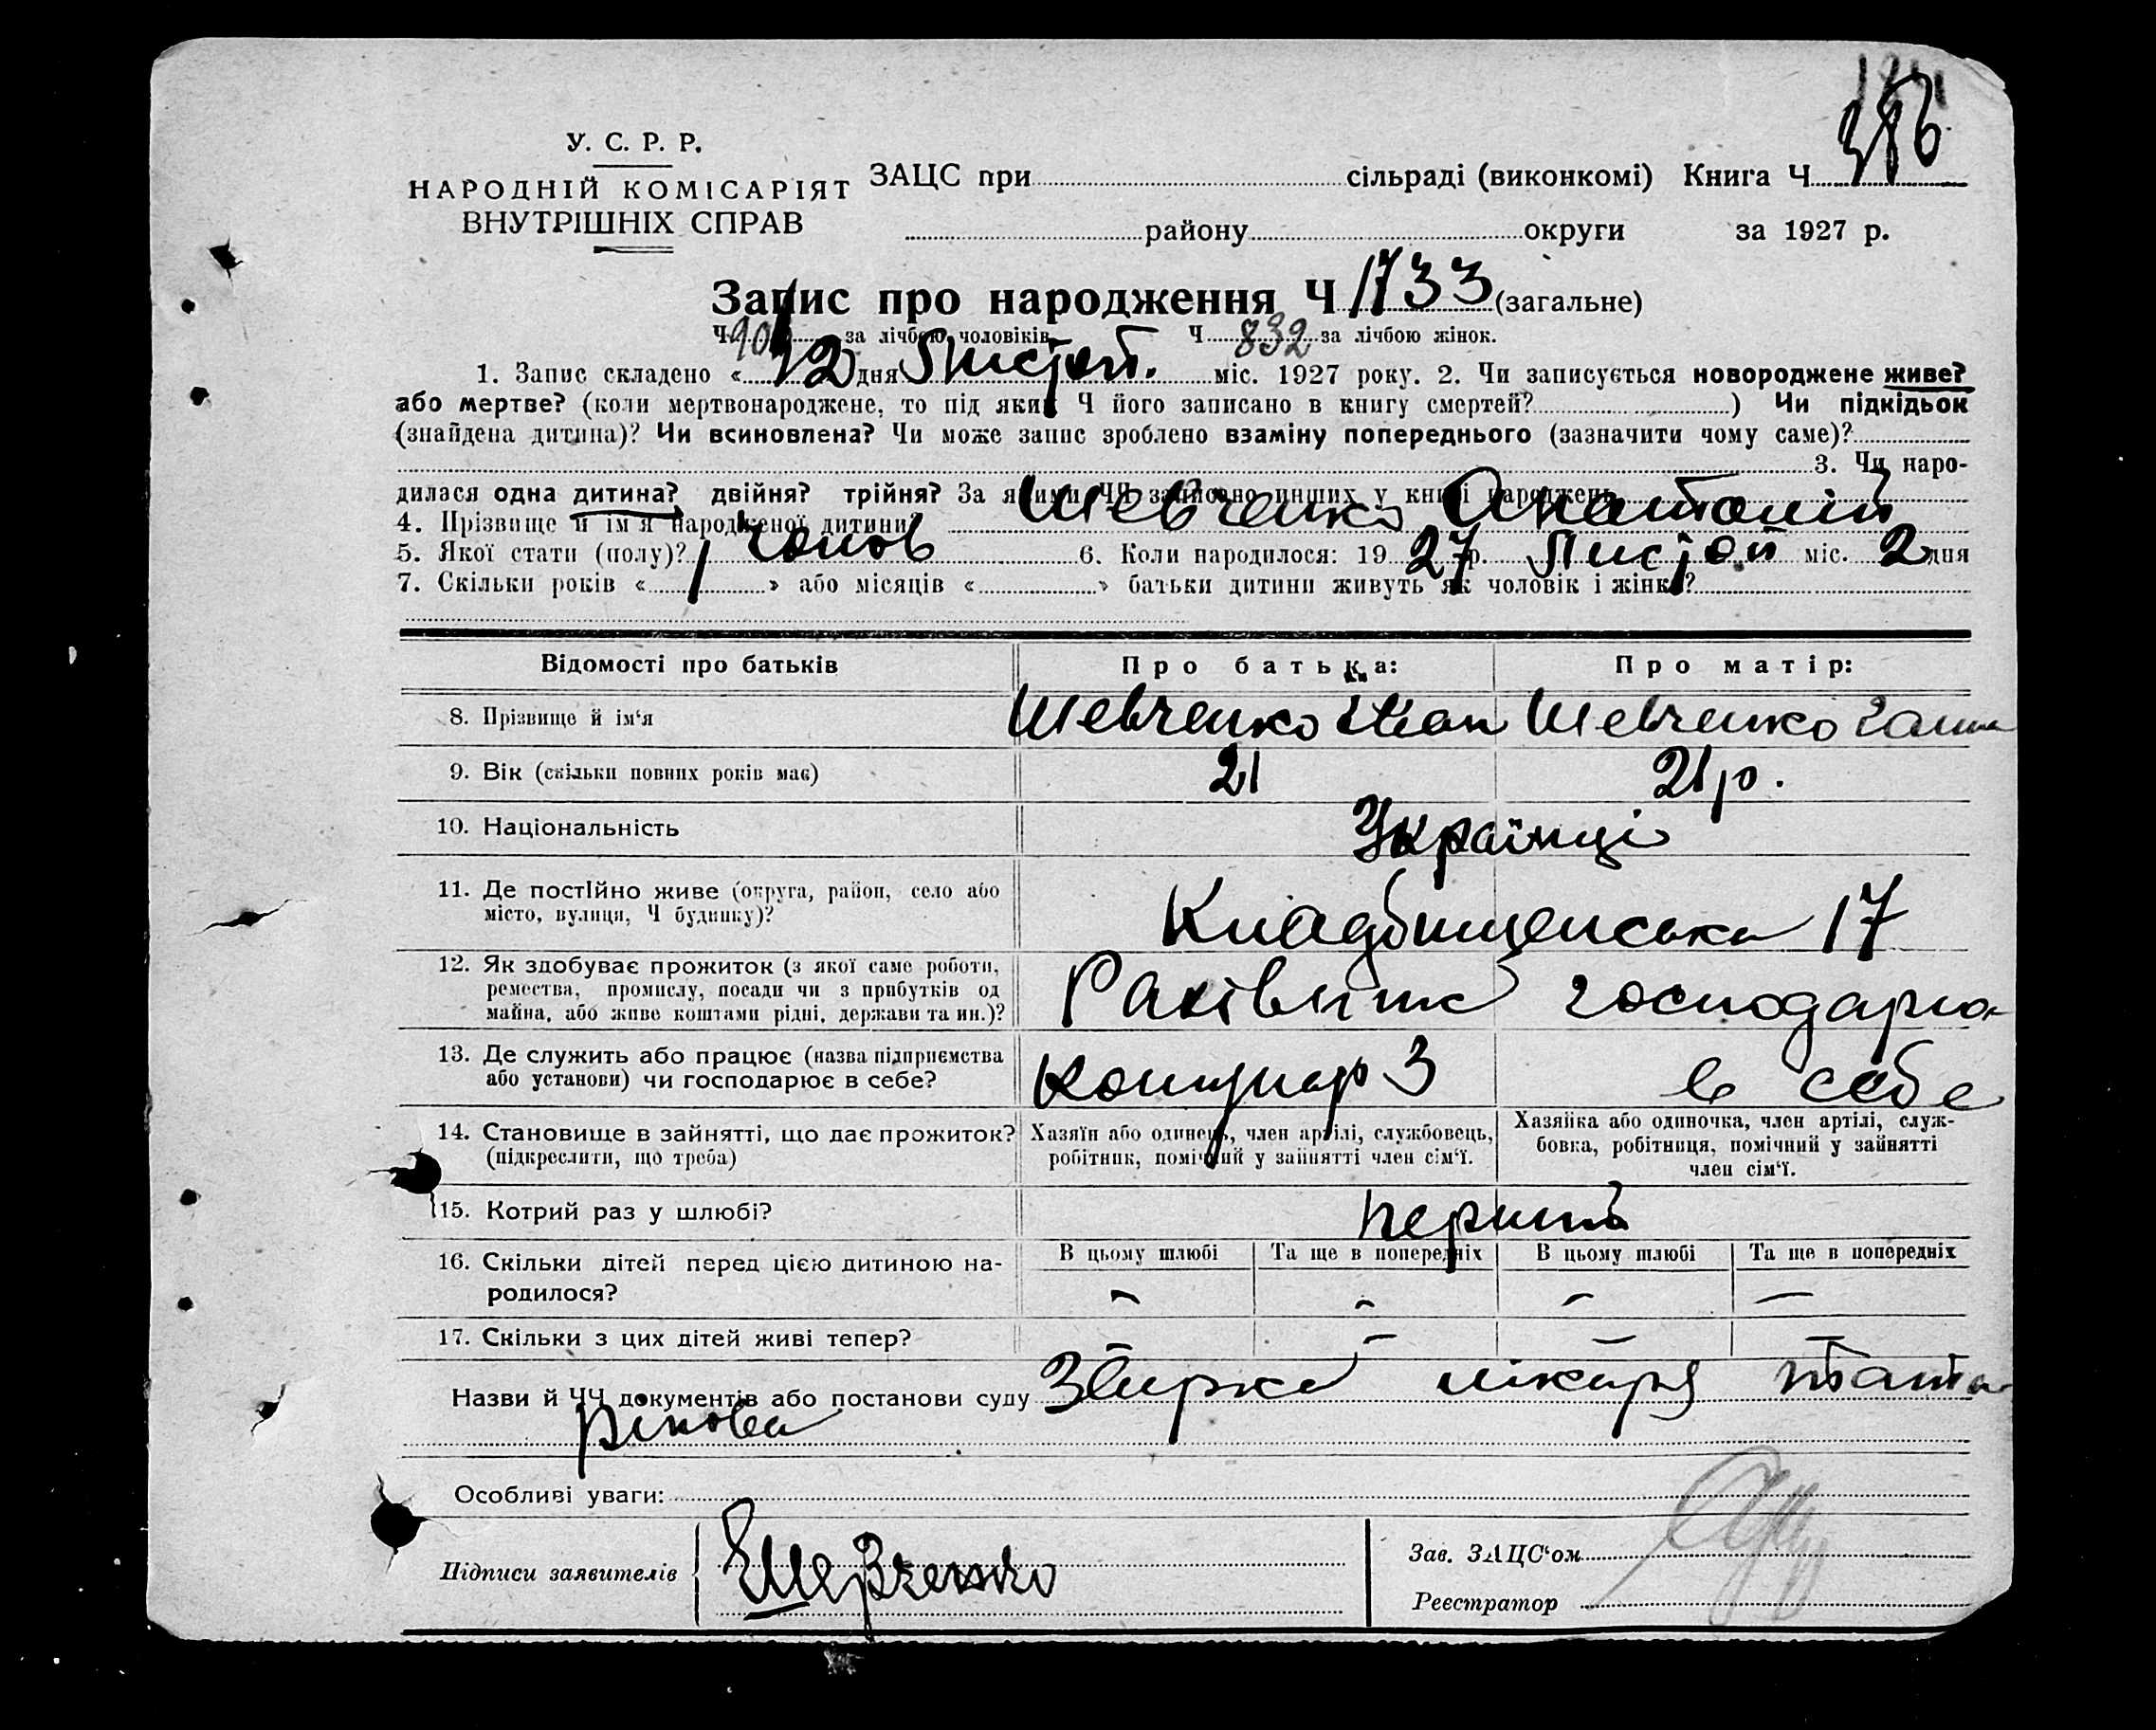 У. С. Р. Р.
НАРОДНІЙ КОМІСАРІЯТ
ВНУТРІШНІХ СПРАВ
ЗАЦС при сільраді (виконкомі) Книга Ч
району округи за 1927 р.
Запис про народження Ч 1733 (загальне)
Ч 901 за лічбою чоловіків Ч 832 за лічбою жінок.
1. Запис складено « 12 дня Листоп. міс. 1927 року. 2. Чи записується новороджене живе?
або мертве? (коли мертвонароджене, то під яким Ч його записано в книгу смертей? ) Чи підкідьок
(знайдена дитина)? Чи всиновлена? Чи може запис зроблено взаміну попереднього (зазначити чому саме)?
3. Чи наро-
дилася одна дитина? двійня? трійня? За якими ЧЧ записано инших у книзі народжень
4. Прізвище й ім'я народженої дитини? Шевченко Анатолій
5. Якої стати (полу)? чолов 6. Коли народилося: 19 27 р. Листоп міс. 2 дня
7. Скільки років « 1 » або місяців « » батьки дитини живуть як чоловік і жінка?
Відомості про батьків Про батька: Про матір:
8. Прізвище й ім'я Шевченко Іван Шевченко Ганна
9. Вік (скільки повних років має) 21 21 р.
10. Національність Українці
11. Де постійно живе (округа, район, село або
місто, вулиця, Ч будинку)? Кладбищенська 17
12. Як здобуває прожиток (з якої саме роботи,
ремества, промислу, посади чи з прибутків од
майна, або живе коштами рідні, держави та ин.)? господарює
13. Де служить або працює (назва підприємства
або установи) чи господарює в себе? 3 в себе
14. Становище в зайнятті, що дає прожиток?
(підкреслити, що треба)
Хазяїн або одинець, член артілі, службовець,
робітник, помічний у зайнятті член сім'ї.
Хазяйка або одиночка, член артілі, служ-
бовка, робітниця, помічний у зайнятті
член сім'ї.
15. Котрий раз у шлюбі? перший
16. Скільки дітей перед цією дитиною на-
родилося?
В цьому шлюбі Та ще в попередніх В цьому шлюбі Та ще в попередніх
– – – –
17. Скільки з цих дітей живі тепер? – – – –
Назви й ЧЧ документів або постанови суду лікаря Тата
рінова
Особливі уваги:
Підписи заявителів Шевченко
Зав. ЗАЦС'ом
Реєстратор